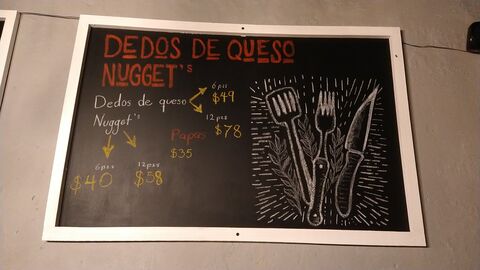 DEDOS DE QUESO
NUGGET'S
Dedos de queso
6 pzs
$49
12 pzs
$78
Nugget's
6 pzs
$40
12 pzs
$58
Papas
$35